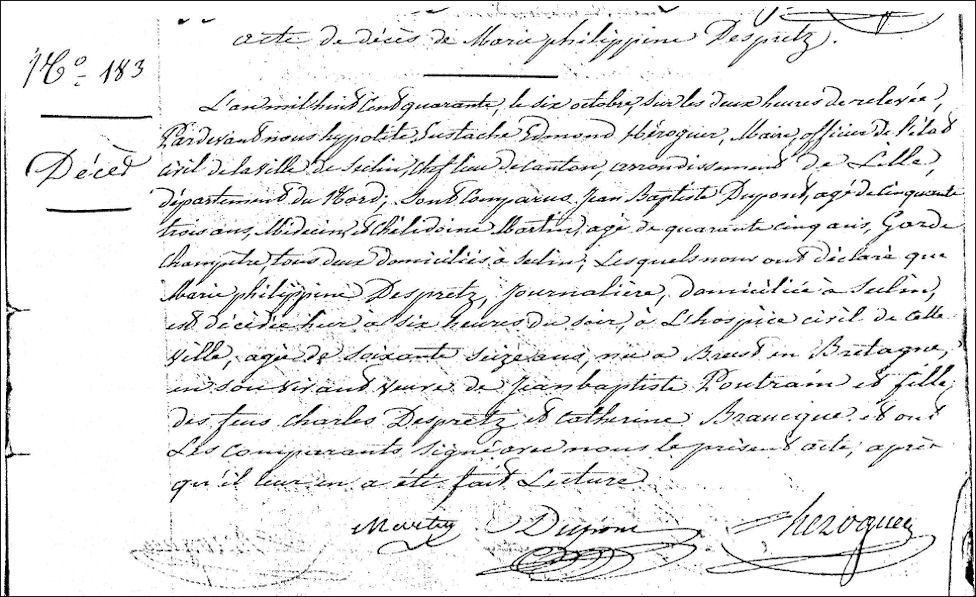 acte de décès de Marie philippine Despretz.
No. 183
Décès
L'an mil huit cent quarante, le six octobre, sur les deux heures de relevée,
Pardevant nous hypolite Eustache Edmond Héroguer, Maire, officier de l'état
civil de la ville de Seclin, chef lieu de canton, arrondissement de Lille,
département du Nord; sont comparus Jean Baptiste Dupont, agé de cinquante
trois ans, Médecin, et Chélidoine Martin, agé de quarante cinq ans, Garde
Champêtre, tous deux domiciliés à Seclin; Lesquels nous ont déclaré que
Marie philippine Despretz, Journalière, domiciliée à Seclin,
est décédée hier, à six heures du soir, à L'hospice civil de cette
ville, agée de soixante seize ans, née à Brest en Bretagne,
en son vivant veuve de Jean baptiste Poutrain et fille
des feus Charles Despretz et Catherine Braucque. et ont
Les comparants signé avec nous le présent acte, après
qu'il leur en a été fait Lecture
Martin Dupont heroguer